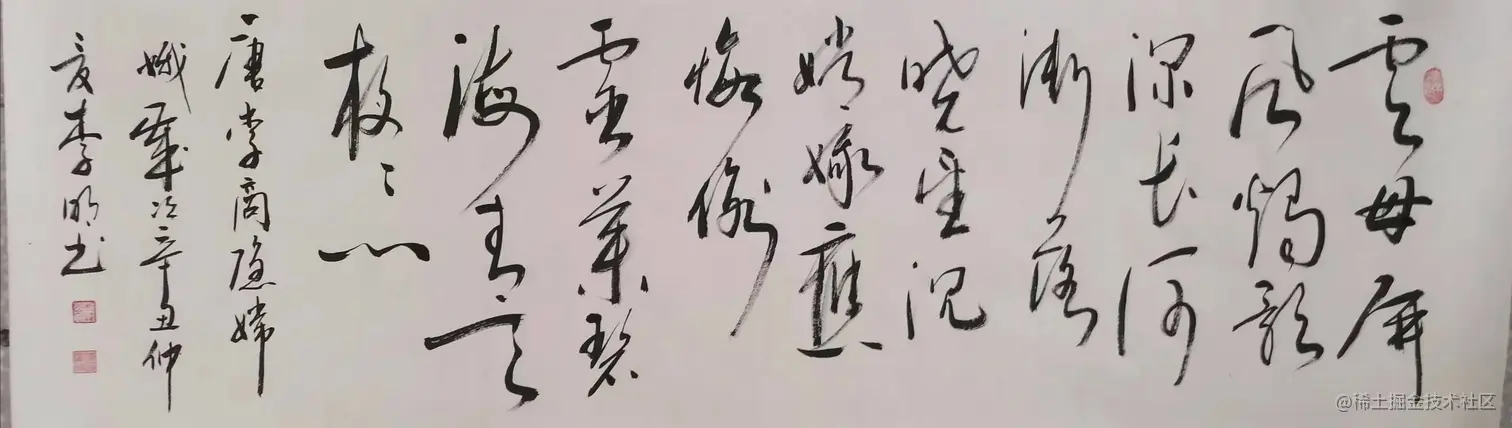 雲母屏
风燭影
深长河
渐落
晓星沉
嫦娥應
悔偷
靈藥碧
海青天
夜夜心
唐李商隐嫦
娥歲次辛丑仲
夏李明书
@稀土掘金技术社区